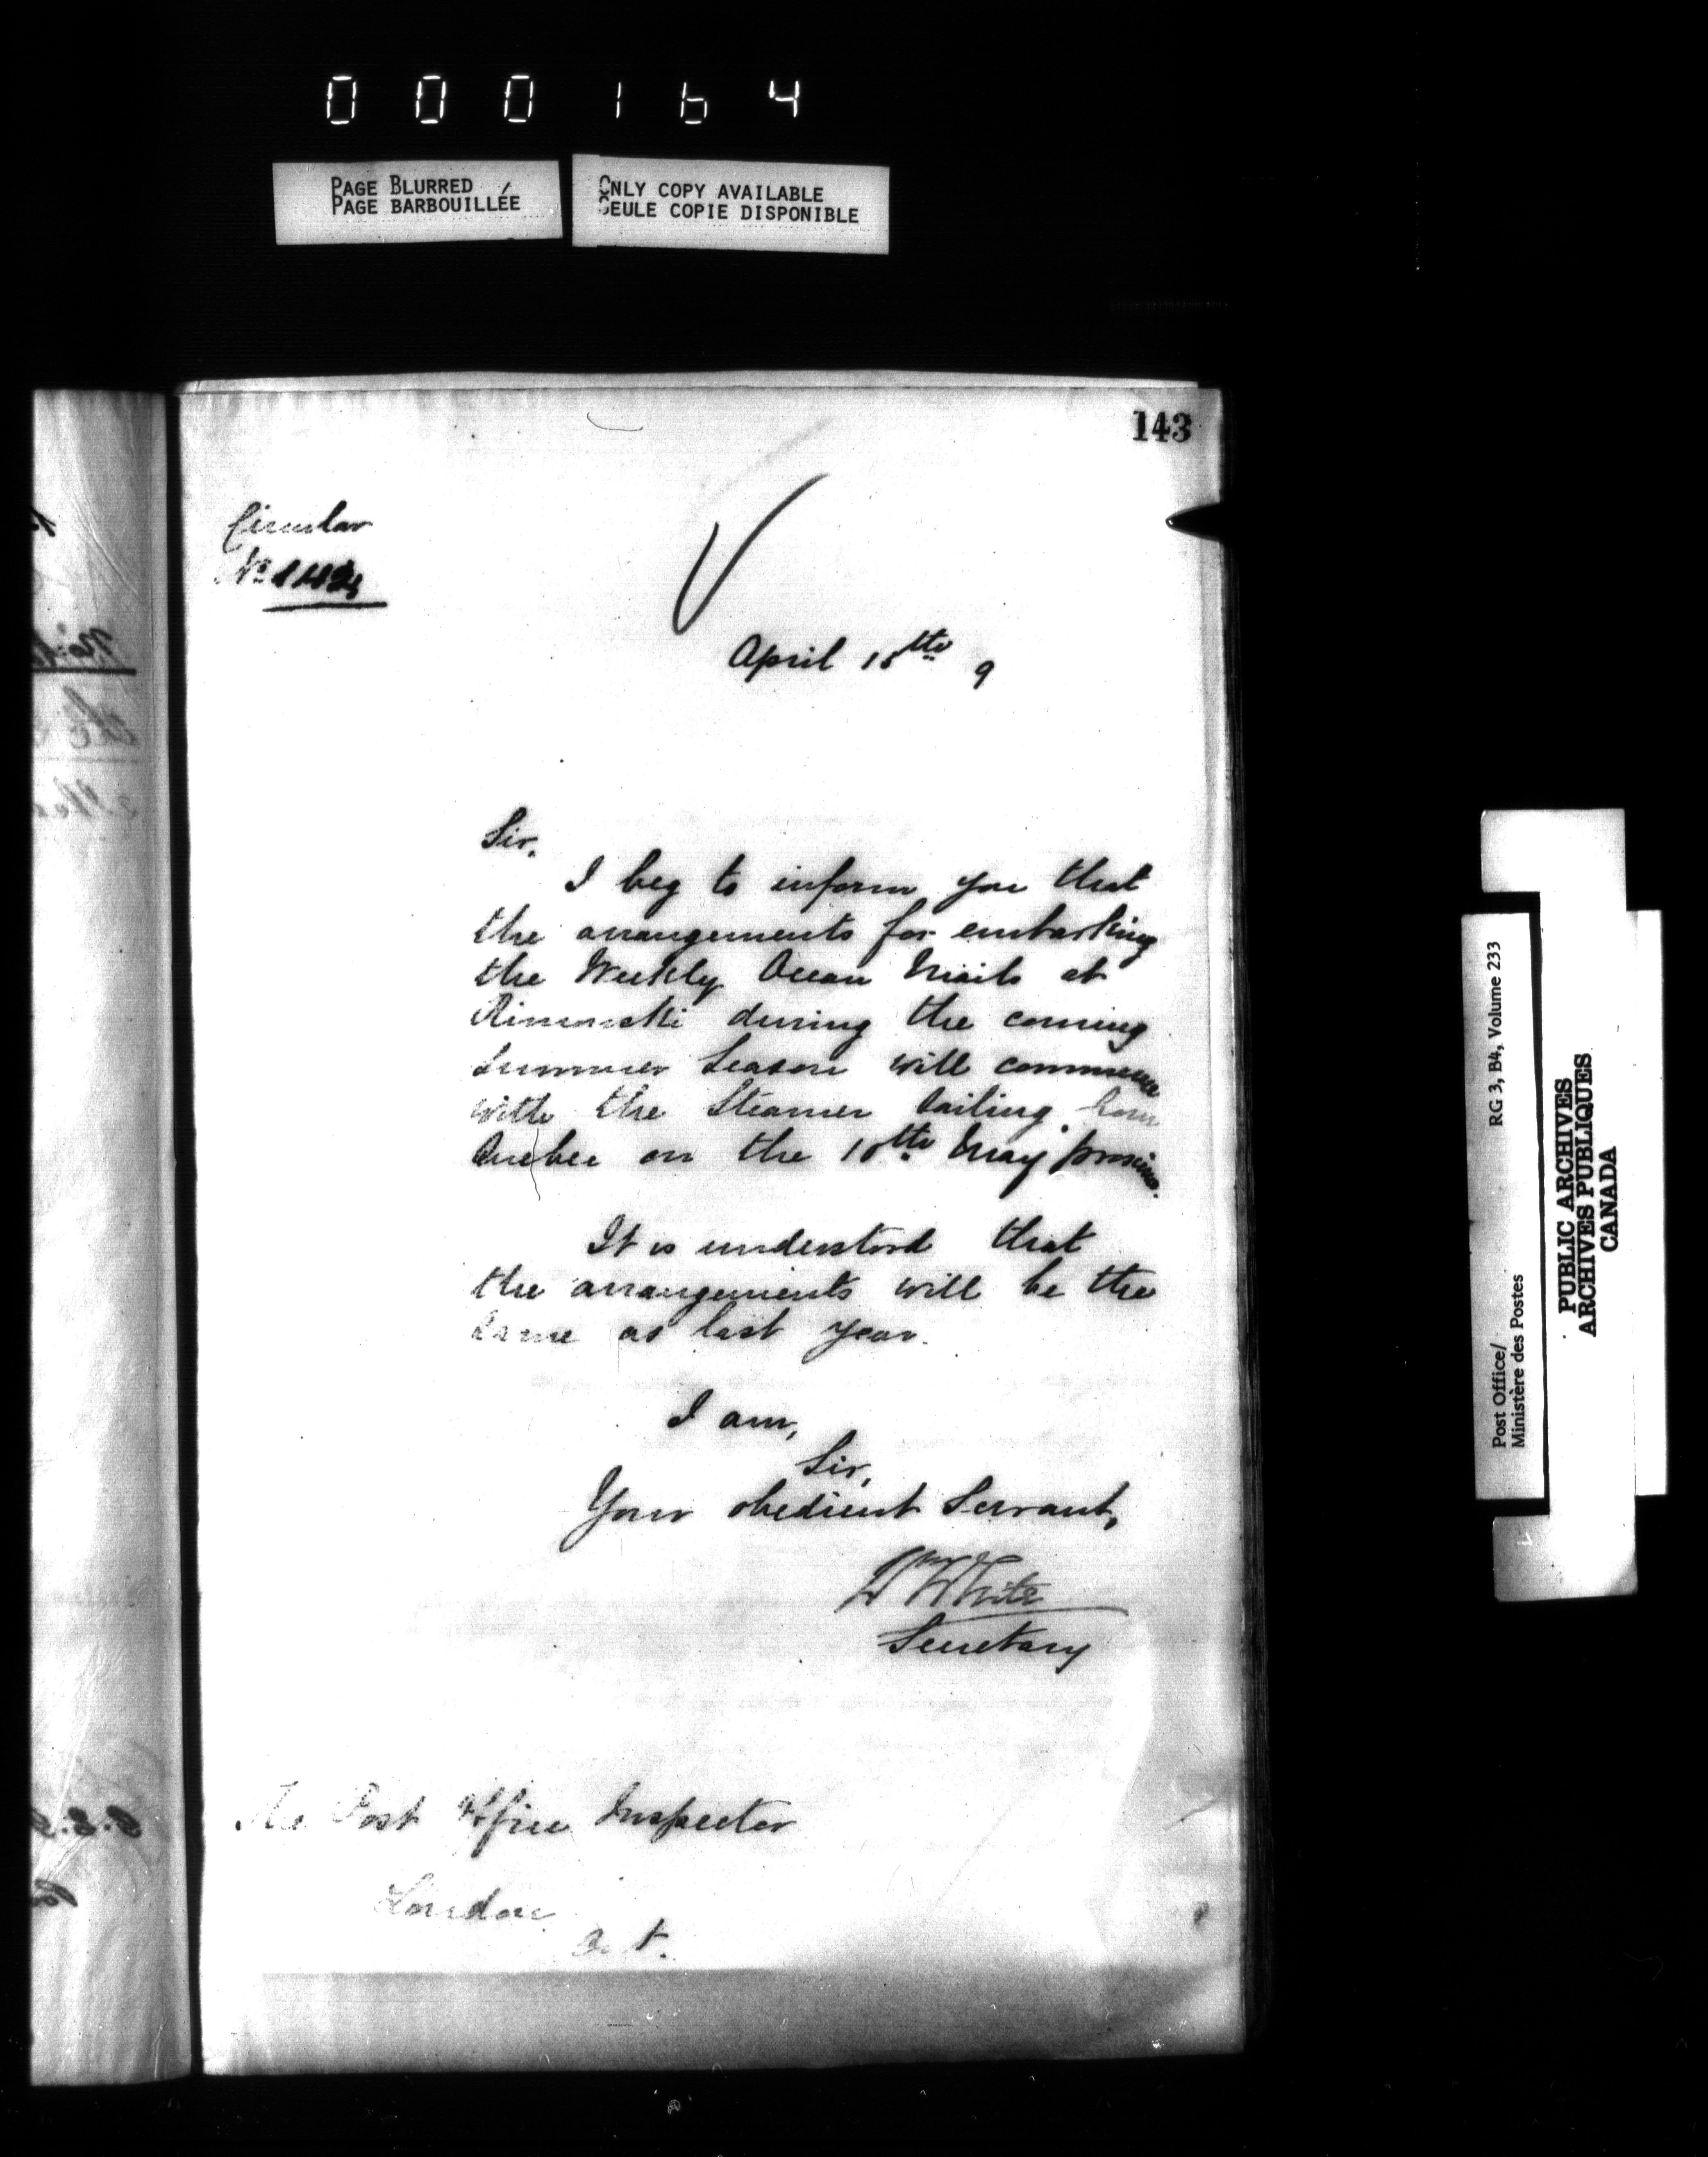 000164
PAGE BLURRED
PAGE BARBOUILLÉE
ONLY COPY AVAILABLE
SEULE COPIE DISPONIBLE
143
Circular
No
April 15th 9
Sir,
I beg to inform you that
the arrangements for embarking
the Weekly Ocean Mails at
Rimouski during the coming
Summer Season will commence
with the Steamer sailing from
Quebec on the 10th May proximo.
It is understood that
the arrangements will be the
same as last year.
I am,
Sir,
Your obedient Servant,
Wm White
Secretary
The Post Office Inspector
London
Ont.
RG 3, B4, Volume 233
Post Office/
Ministère des Postes
PUBLIC ARCHIVES
ARCHIVES PUBLIQUES
CANADA